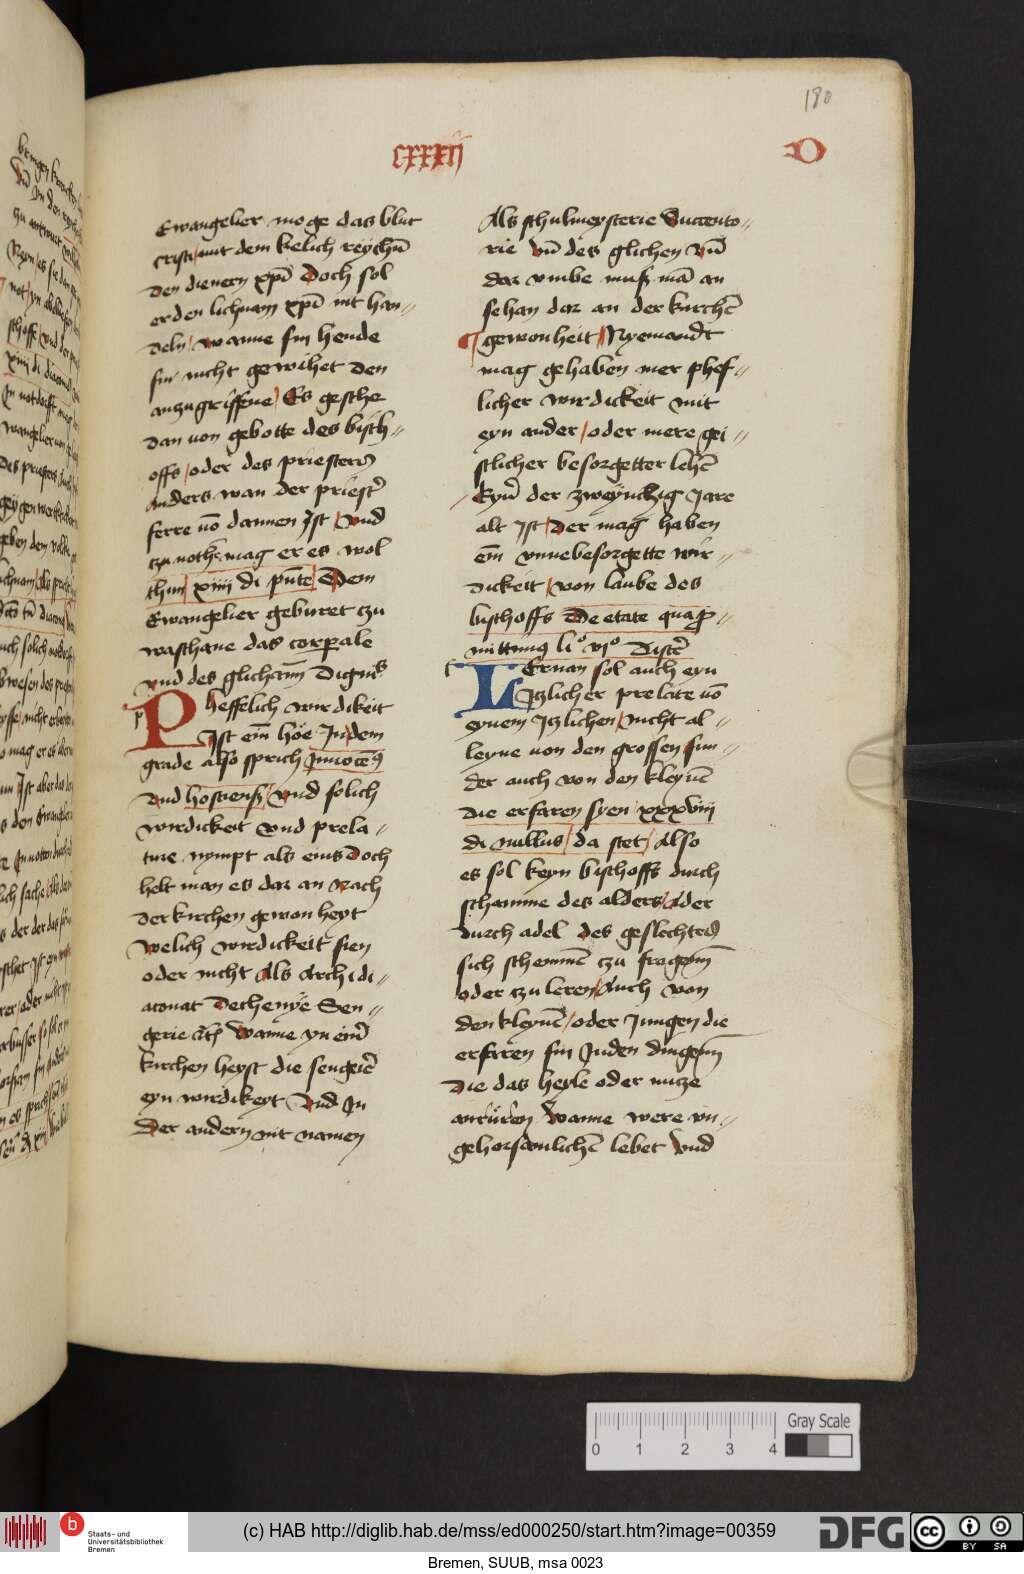 180
cxxxij
D
Ewangelier moge das blut
cristi mit dem kelich reychñ
den dienern xp̄i Doch sol
er den lichnam xp̄i nit han//
deln / wanne sin hende
sin nicht gewihet den
anzugriffene / Es geschee
dan von gebotte des bisch//
offs / oder des priesters
anders wan der priestẽ
ferre võ dannen Jst / Vnd
czu noth mag er es wol
thun / xiiii di pñte / Dem
Ewangelier geburet czu
wasthane das corp̱ale
vnd des glichanñ Dignits
Pheffelich wirdikeit
Jst eim höe In dem
grade also sprich Jnnocẽ9
vnd hostiensß / vnd solich
wirdickeit vnd prela//
ture nympt als eins doch
helt man es dar an nach
der kirchen gewonheyt
Welich wirdickeit sien
oder nicht Als Archidi//
aconat Dechenye Sen//
gerie Wanne yn eim̃
kirchen heyst die sengeiẽ
eyn wirdikeyt Vnd In
der andern nit namen
Als schulmeysterie Succento//
rie vñ des glichen vñ
dar vmbe muß mã an
sehan dar an der kirchẽ
gewonheit / Nyemandt
mag gehaben mer phef//
licher wirdickeit mit
eyn ander / oder mere gei//
stlicher besorgetter lehẽ
Eyñ der zweynczig Jare
alt Jst / Der mag haben
em̃ vnnebesorgette wir//
dickeit / von laube des
bisthoffs De etate qua p//
mittimus li° vj° Distẽ
LErnan sol auch eyn
Jtzlicher prelate võ
eynem Jtzlichen / nicht al//
leyne von den grossen sun//
der auch von den kleynẽ
die erfaren syen / xxxviii
di nullus / da stet / Also
es sol keyn bischoffs durch
schamme des alders / Ader
durch adel des geslechtes
sich schemmẽ czu fragenn
oder czu leren / Auch von
den kleynẽ / oder Jungen die
erfaren sin Jn den dingenn
die das heyle oder nucze
anrüren Wanne were vn//
gehorsamlichẽ lebet vnd
0 1 2 3 4
Gray Scale
Staats- und
Universitätsbibliothek
Bremen
(c) HAB http://diglib.hab.de/mss/ed000250/start.htm?image=00359
DFG
CC BY SA
Bremen, SUUB, msa 0023